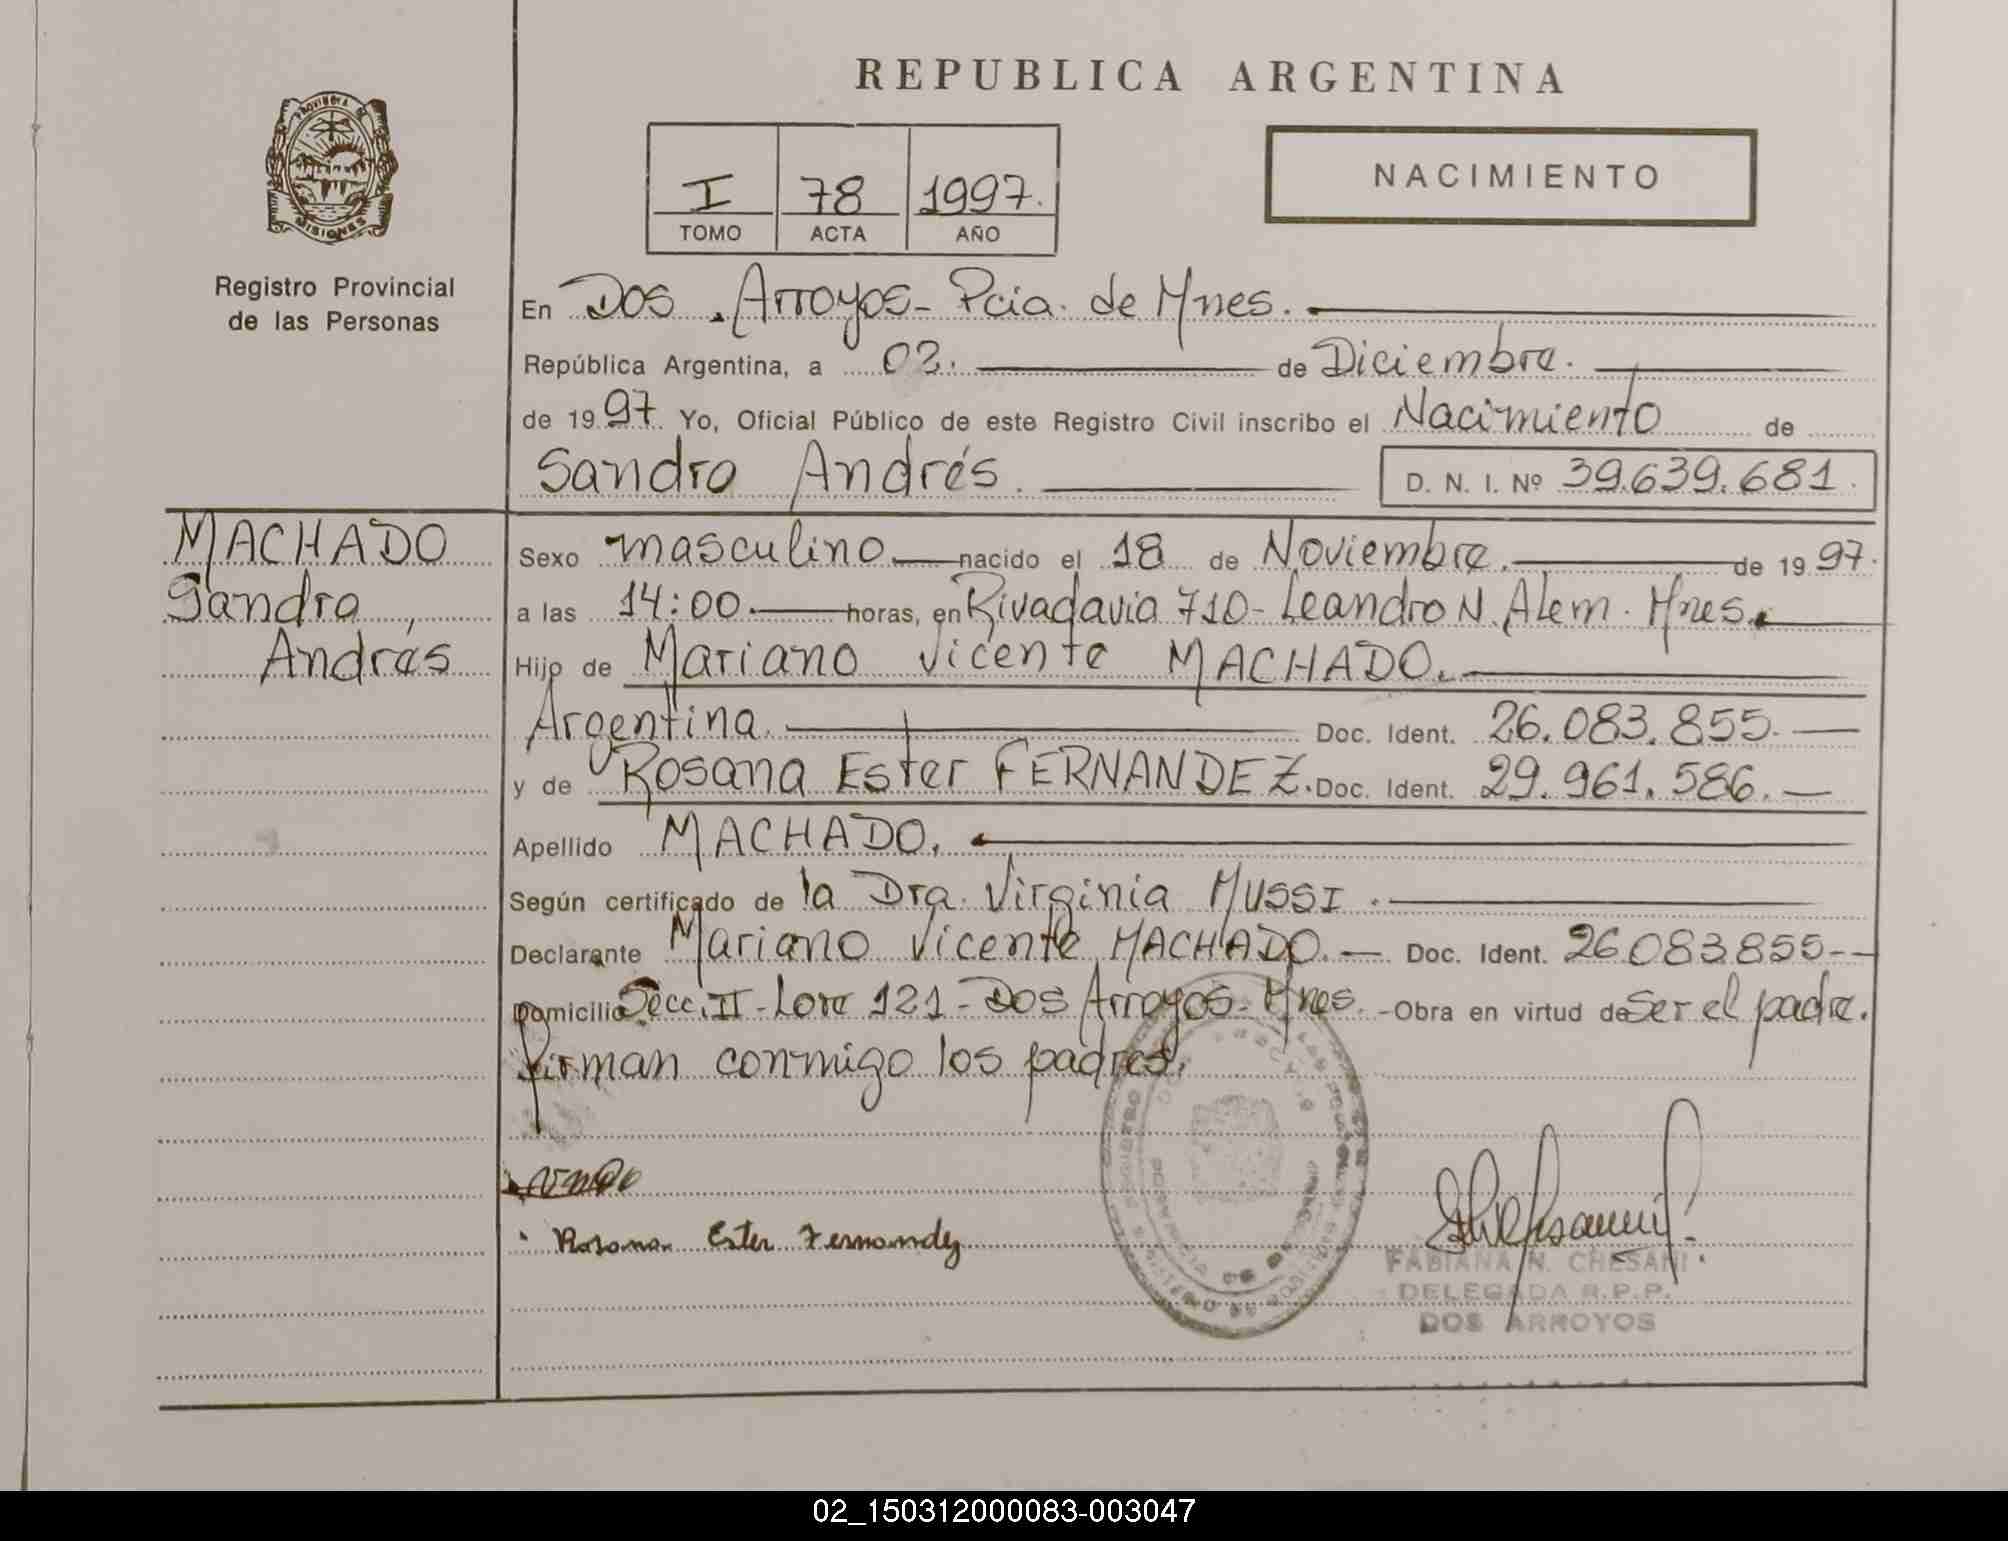 REPUBLICA ARGENTINA
PROVINCIA DE
MISIONES
Registro Provincial
de las Personas
I 78 1997.
TOMO ACTA AÑO
NACIMIENTO
En Dos Arroyos - Pcia. de Mnes.
República Argentina, a 03. de Diciembre.
de 1997. Yo, Oficial Público de este Registro Civil inscribo el Nacimiento de
Sandro Andrés. D. N. I. Nº 39.639.681.
MACHADO
Sandro
Andrés
Sexo masculino nacido el 18 de Noviembre. de 1997.
a las 14:00. horas, en Rivadavia 710 - Leandro N. Alem. Mnes.
Hijo de Mariano Vicente MACHADO.
Argentina. Doc. Ident. 26.083.855.
y de Rosana Ester FERNANDEZ. Doc. Ident. 29.961.586.
Apellido MACHADO.
Según certificado de la Dra. Virginia MUSSI.
Declarante Mariano Vicente MACHADO. Doc. Ident. 26083855
Domicilio Secc. II - Lote 121 - Dos Arroyos - Mnes. - Obra en virtud de Ser el padre.
firman conmigo los padres.
Rosana Ester Fernandez
FABIANA N. CHESANI
DELEGADA R.P.P.
DOS ARROYOS
02_150312000083-003047